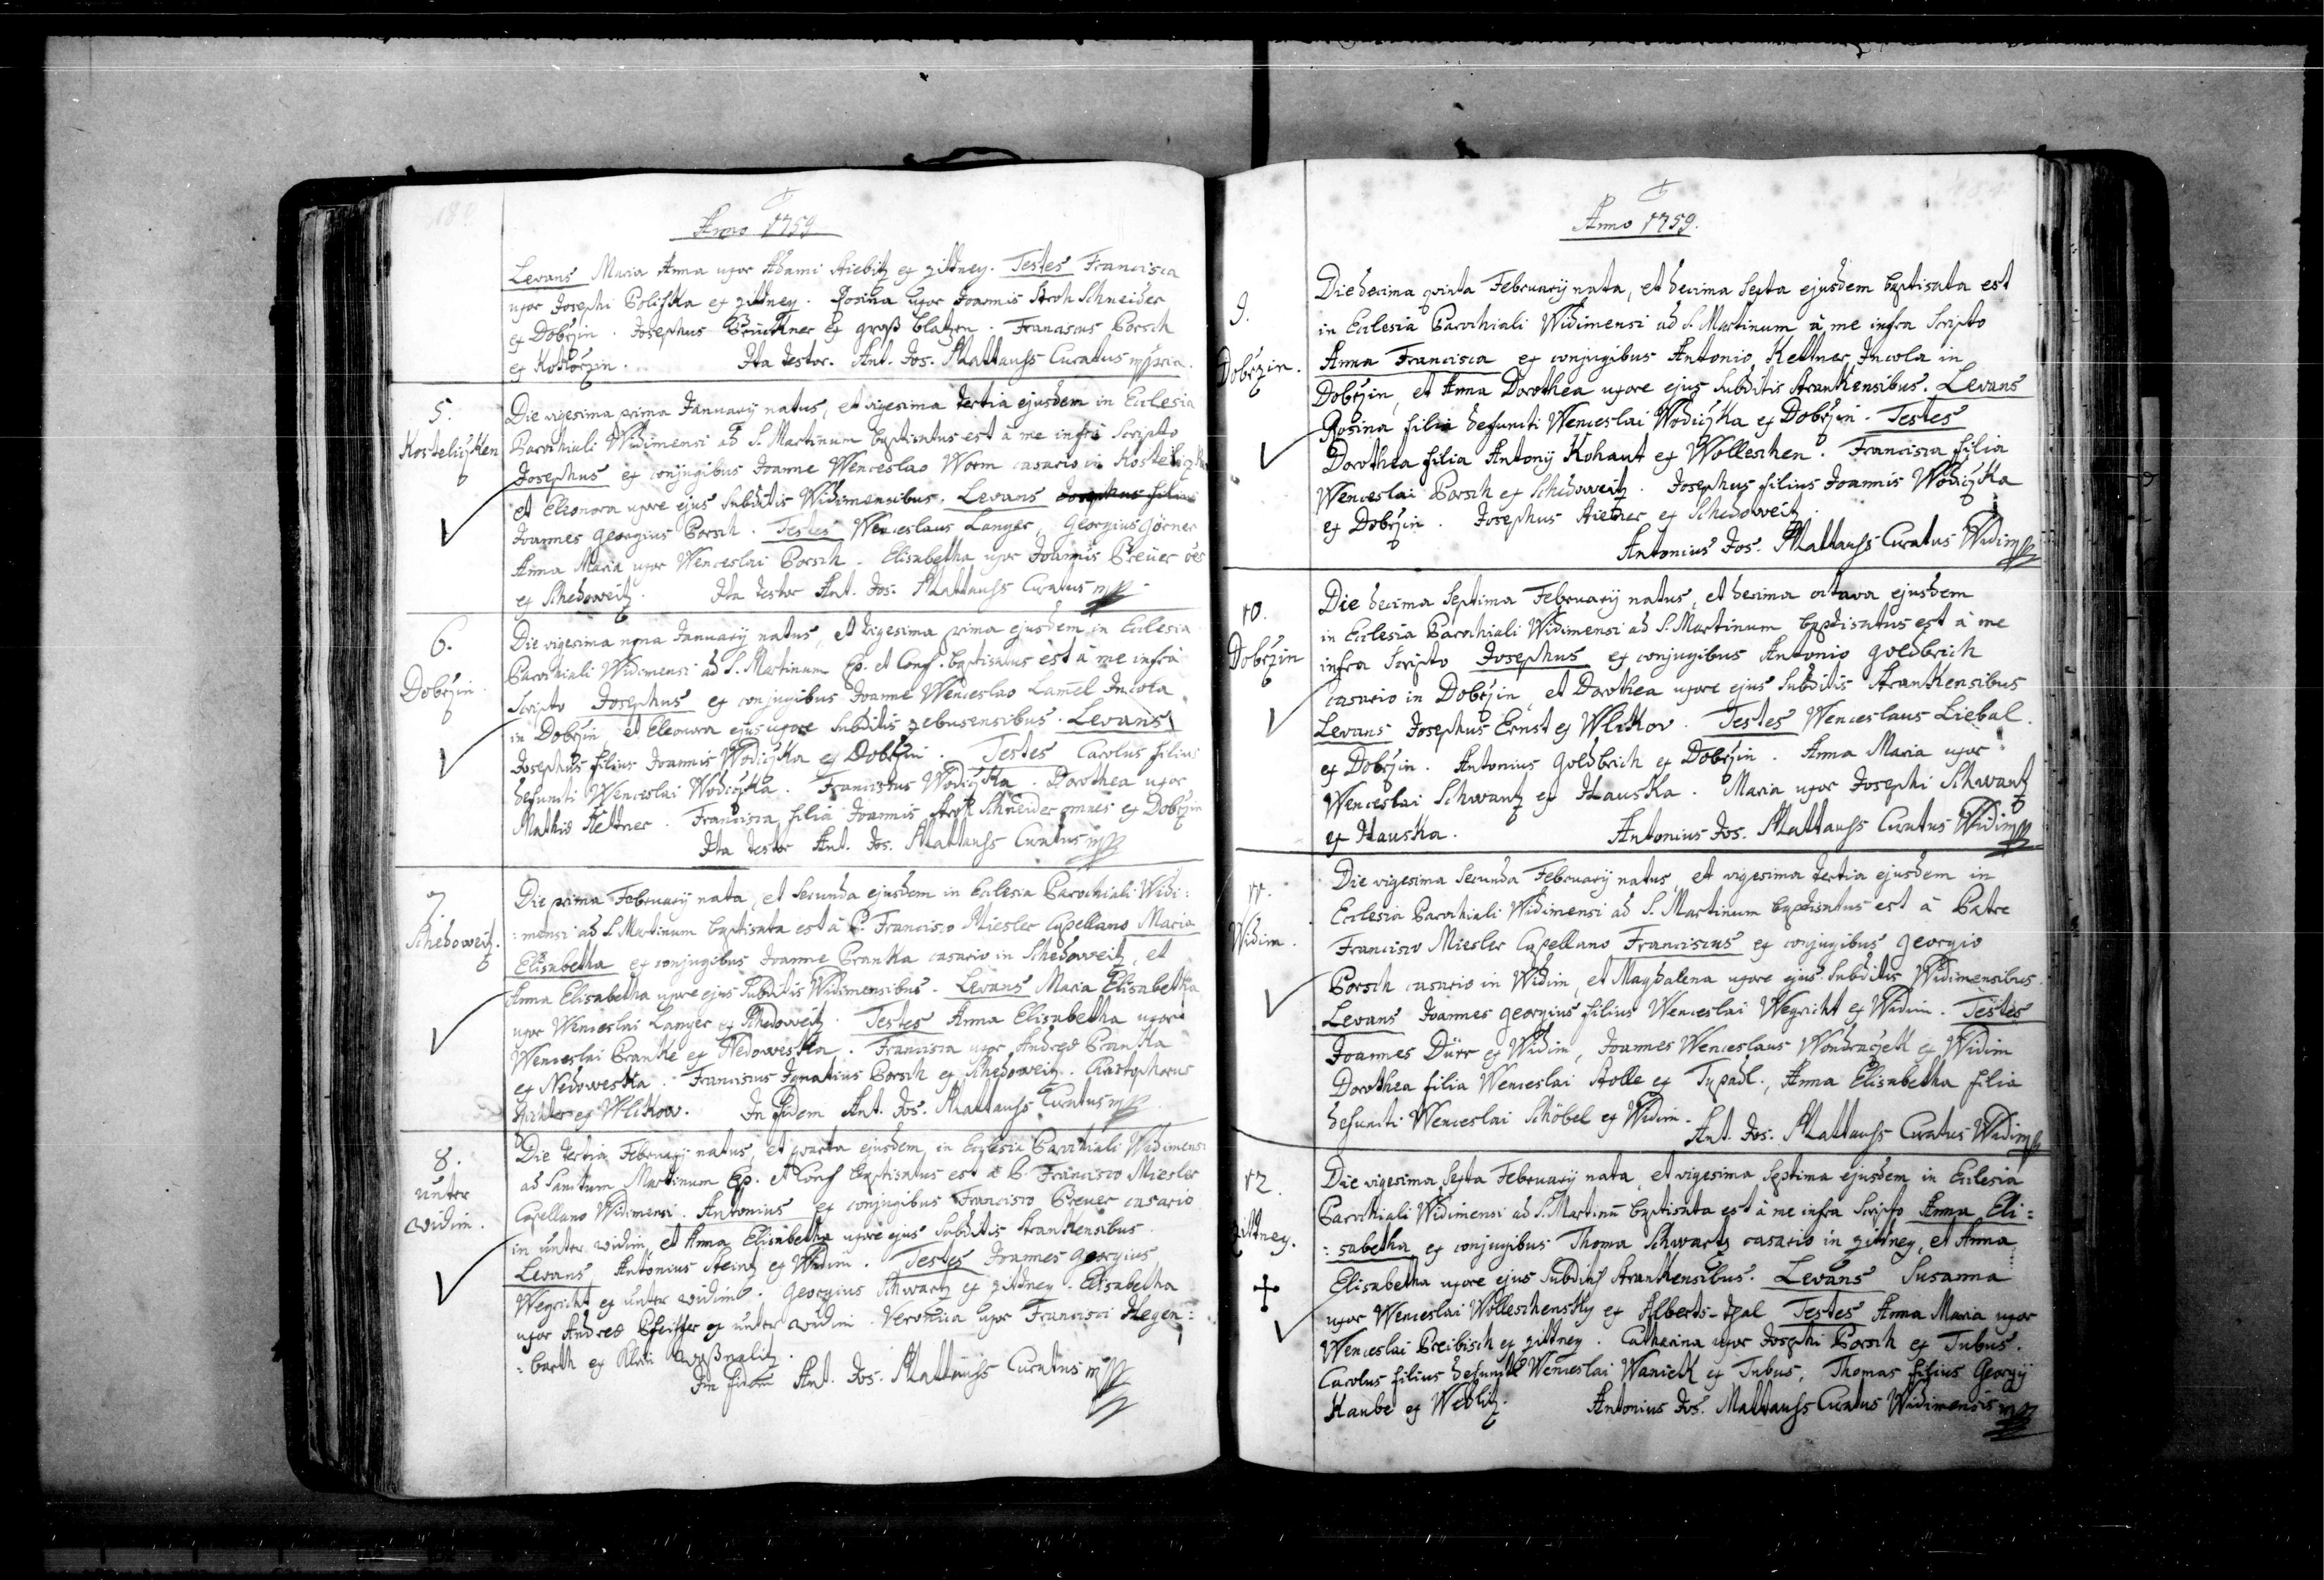 Anno 1759
Levans Maria Anna uxor Adami Riebitz ex Zittney. Testes Francisca
uxor Josephi Polifka ex Zittney. Rosina uxor Joannis Stroh Schneider
ex Dobrzin. Josephus Brückner ex groß blatzen. Franciscus Porsch
ex Kokorzin. Ita testor. Ant. Jos. Mattauss Curatus mppria.
5.
Kosteliczken
Die vigesima prima January natus, et vigesima tertia ejusdem in Ecclesia
Parochiali Widimensi ad S. Martinum baptisatus est à me infrà Scripto
Josephus ex conjugibus Joanne Wenceslao Worm casario in
et Elionora uxore ejus Subditis Widimensibus. Levans Josephus filius
Joannes Georgius Porsch. Testes Wenceslaus Langer, Georgius Görner
Anna Maria uxor Wenceslai Porsch. Elisabetha uxor Joannis Breüer
ex Schedoweitz. Ita testor Ant. Jos. Mattauss Curatus mpp
6.
Dobrzin.
Die vigesima nona January natus, et trigesima prima ejusdem in Ecclesia
Parochiali Widimensi ad S. Martinum Ep. et Conf. baptisatus est à me infrà
Scripto Josephus ex conjugibus Joanne Wenceslao Lam̄el Incola
in Dobrzin et Eleonora ejus uxore Subditis zebusensibus. Levans
Josephus filius Joannis Wodiczka ex Dobrzin. Testes Carolus filius
defuncti Wenceslai Wodiczka. Franciscus Wodiczka. Dorothea uxor
Mathiæ Kettner. Francisca filia Joannis Stroh Schneider omnes ex Dobrzin
Ita testor Ant. Jos. Mattauss Curatus mpp
7.
Schedoweitz.
Die prima February nata, et Secunda ejusdem in Ecclesia Parochiali Widi:
:mensi ad S. Martinum baptisata est à P. Francisco Miesler Capellano Maria
Elisabetha ex conjugibus Joanne Pranka casario in Schedoweitz, et
Anna Elisabetha uxore ejus Subditis Widimensibus. Levans Maria Elisabetha
uxor Wenceslai Langer ex Schedoweitz. Testes Anna Elisabetha uxor
Wenceslai Pranke ex Nedoweska. Francisca uxor Andreæ Pranka
ex Nedoweska. Franciscus Ignatius Porsch ex Schedoweitz. Christophorus
ex Wlikow. In fidem Ant. Jos. Mattauss Curatus mpp
8.
unter
widim.
Die tertia February natus, et quarta ejusdem, in Ecclesia Parochiali Widimensi
ad Sanctum Martinum Ep. et Conf baptisatus est à P. Francisco Miesler
Capellano Widimensi. Antonius ex conjugibus Francisco Breuer casario
in unter widim, et Anna Elisabetha uxore ejus Subditis Strankensibus.
Levans Antonius Steinz ex Widim. Testes Joannes Georgius
Wegricht ex unter widimb. Georgius Schwartz ex Zittney. Elisabetha
uxor Andreæ Pfeiffer ex unter widim. Veronica uxor Francisci Hegen:
:barth ex Klein
In fidem Ant. Jos. Mattauss Curatus mpp
Anno 1759.
9.
Dobrzin.
Die decima quinta February nata, et decima Sexta ejusdem baptisata est
in Ecclesia Parochiali Widimensi ad S. Martinum à me infra Scripto
Anna Francisca ex conjugibus Antonio Kettner Incola in
Dobrzin, et Anna Dorothea uxore ejus Subditis Strankensibus. Levans
Rosina filia defuncti Wenceslai Wodiczka ex Dobrzin. Testes
Dorothea filia Antony Kohaut ex Wolleschen. Francisca filia
Wenceslai Porsch ex Schedoweitz. Josephus filius Joannis Wodiczka
ex Dobrzin. Josephus ex Schedoweitz.
Antonius Jos. Mattauss Curatus Widim mpp
10.
Dobrzin
Die decima Septima February natus, et decima octava ejusdem
in Ecclesia Parochiali Widimensi ad S. Martinum baptisatus est à me
infra Scripto Josephus ex conjugibus Antonio Goldbrich
casario in Dobrzin, et Dorothea uxore ejus Subditis Strankensibus
Levans Josephus Ernst ex Wlikow. Testes Wenceslaus Liebal.
ex Dobrzin. Antonius Goldbrich ex Dobrzin. Anna Maria uxor
Wenceslai Schwantz ex Hauska. Maria uxor Josephi Schwantz
ex Hauska. Antonius Jos. Mattauss Curatus Widim mpp
11.
Widim.
Die vigesima Secunda February natus, et vigesima tertia ejusdem in
Ecclesia Parochiali Widimensi ad S. Martinum baptisatus est à Patre
Francisco Miesler Capellano Franciscus ex conjugibus Georgio
Porsch casario in Widim, et Magdalena uxore ejus Subditis Widimensibus.
Levans Joannes Georgius filius Wenceslai Wegricht ex Widim. Testes
Joannes Dürr ex Widim, Joannes Wenceslaus Wondraczek ex Widim
Dorothea filia Wenceslai Stolle ex Tupadl., Anna Elisabetha filia
defuncti Wenceslai Schöbel ex Widim.
Ant. Jos. Mattauss Curatus Widim mpp
12.
Zittney.
Die vigesima Sexta February nata, et vigesima Septima ejusdem in Ecclesia
Parochiali Widimensi ad S. Martinū baptisata est à me infra Scripto Anna Eli:
:sabetha ex conjugibus Thoma Schwartz casario in Zittney, et Anna
Elisabetha uxore ejus Subditis Strankensibus. Levans Susanna
uxor Wenceslai Wolleschensky ex Alberts-thal Testes Anna Maria uxor
Wenceslai Preibisch ex Zittney. Catharina uxor Josephi Porsch ex Tubus.
Carolus filius defuncti Wenceslai Waniek ex Tubus, Thomas filius Georgy
Kaube ex Wedlitz. Antonius Jos. Mattauss Curatus Widimensis mpp